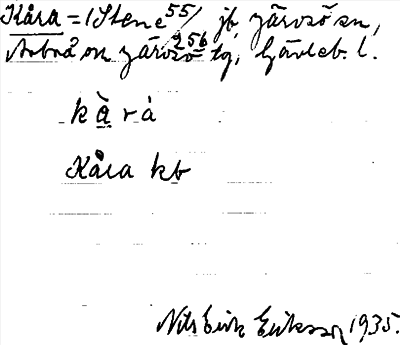 Kåra = /Stene 55/ jb, Järvsö sn,
Arbrå on Järvsö 256 tg, Gävleb. l.
kàrà
Kåra kb
Nils Erik Eriksson 1935.